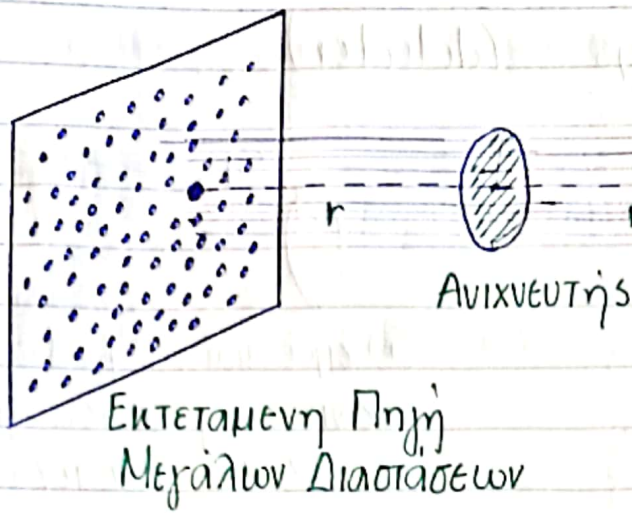 r
Ανιχνευτής
Εκτεταμενη Πηγή
Μεγάλων Διαστάσεων